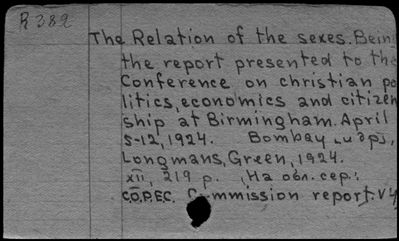 R 382
The Relation of the sexes. Bein
the report presented to the
Conference on christian po
litics, economics and citizen
ship at Birmingham. April
5-12, 1924. Bombay, и др.,
Longmans, Green, 1924.
XII, 219 p. , На обл. сер.:
C.O.P.E.C. Commission report. V4